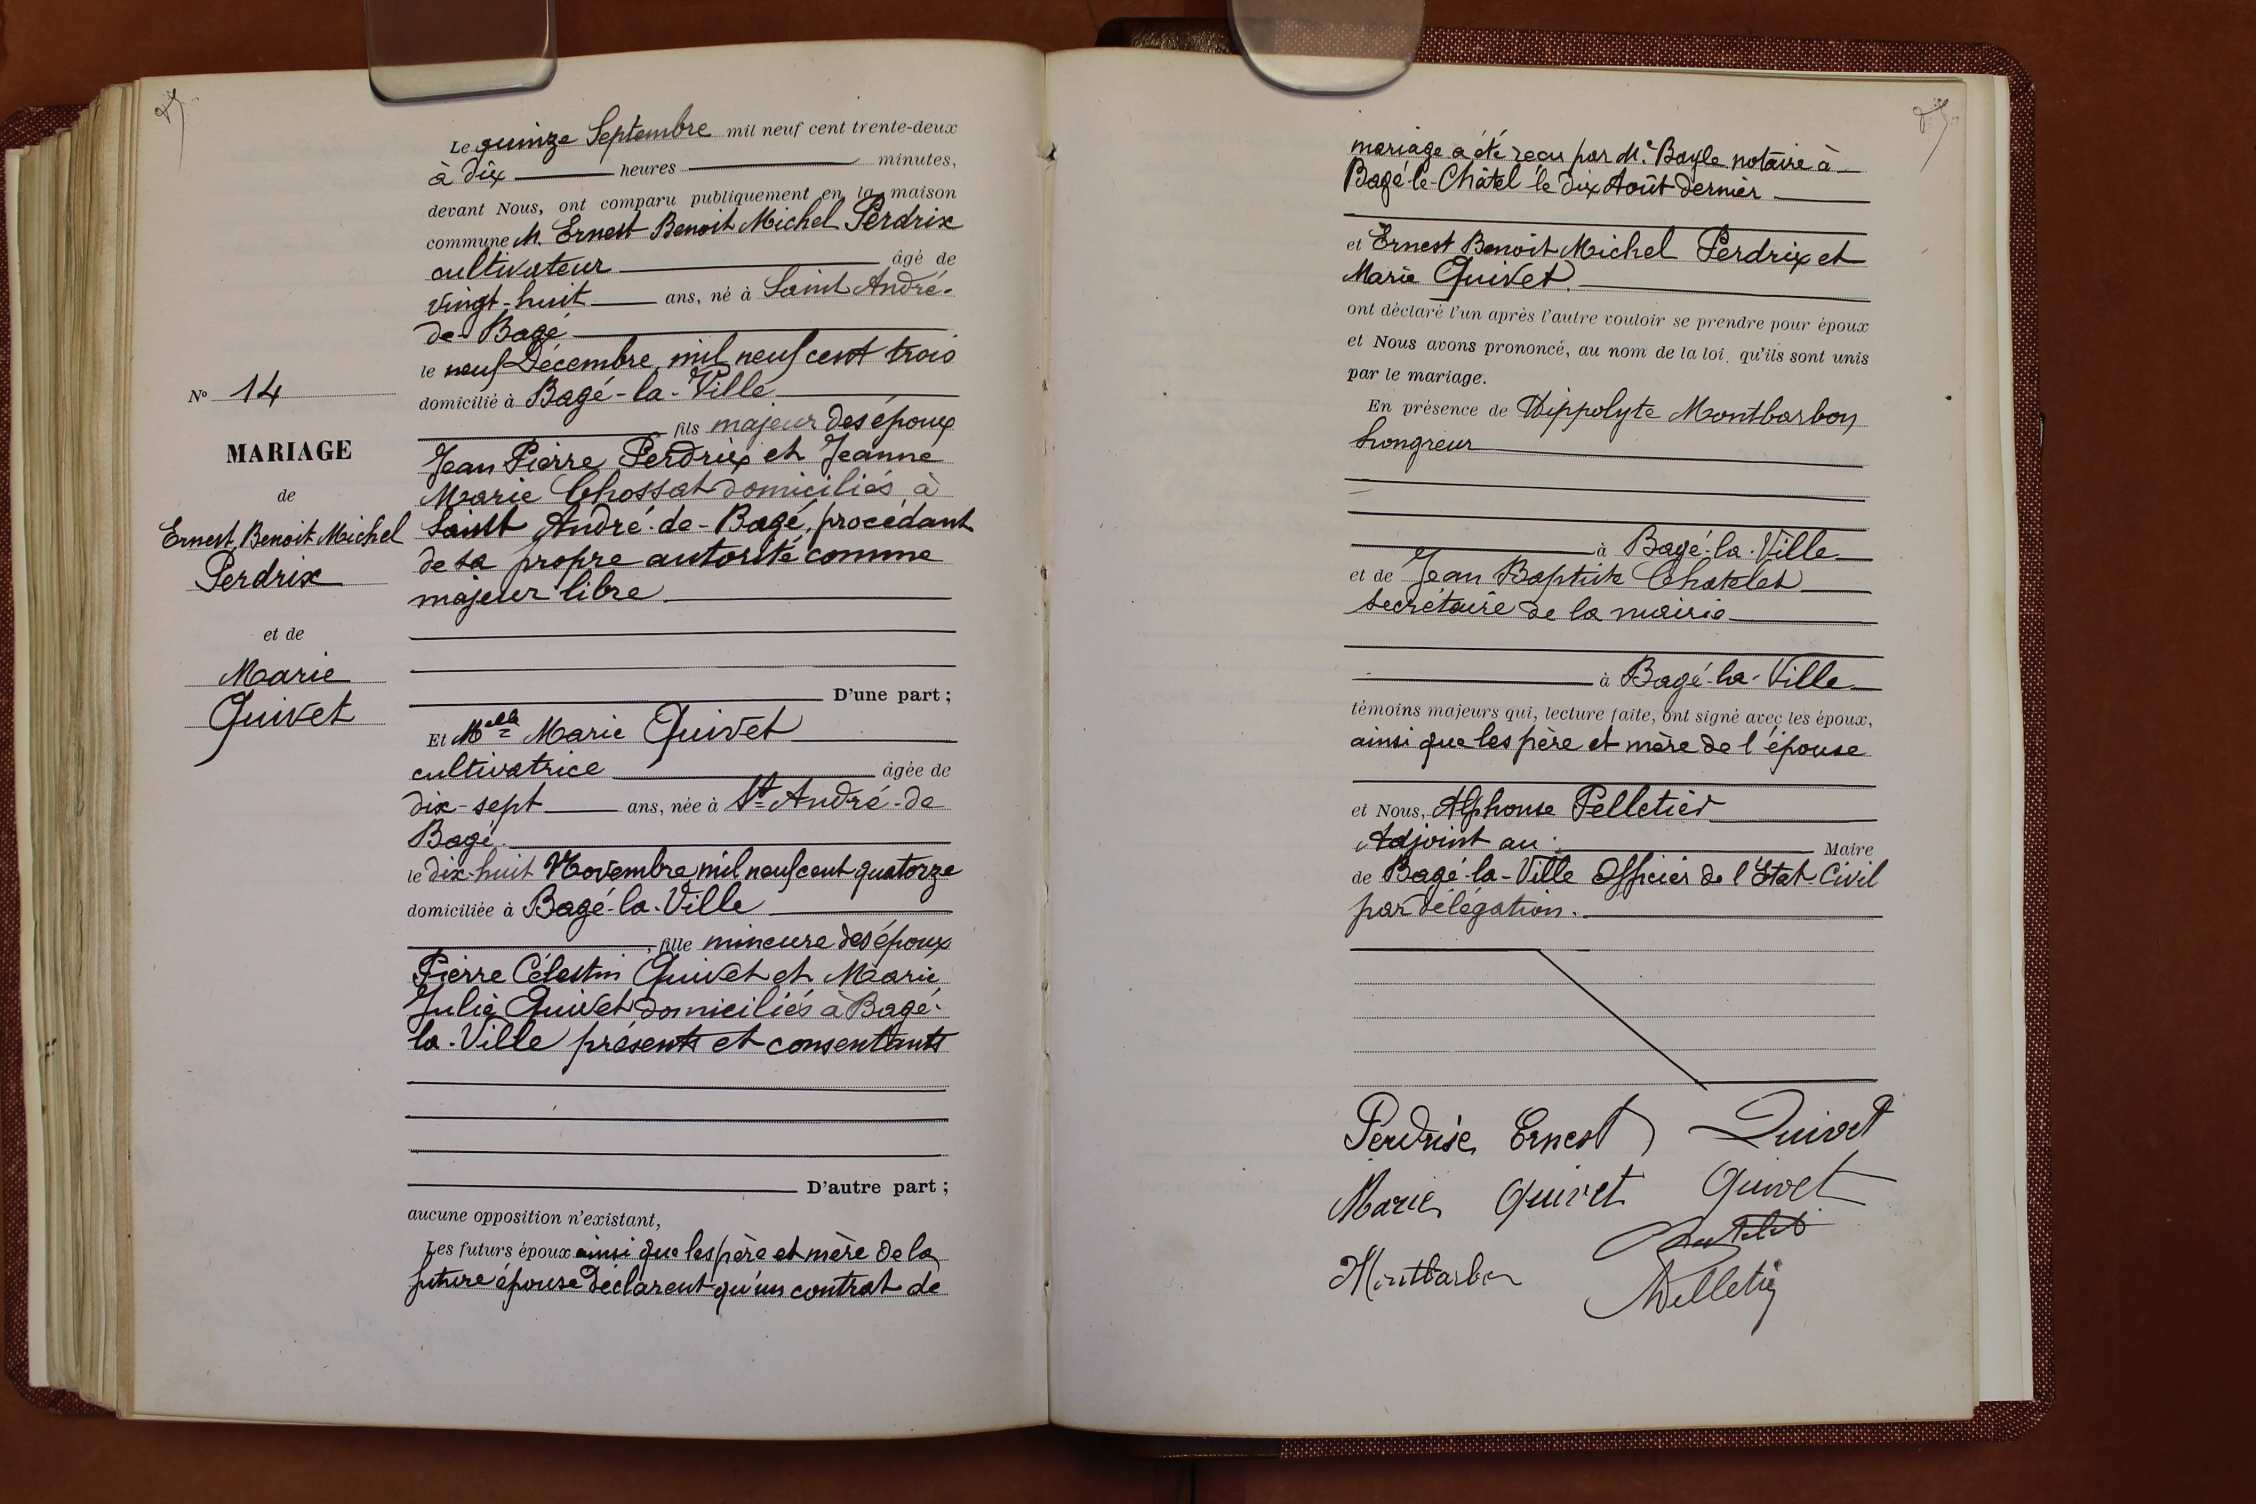 Le quinze Septembre mil neuf cent trente-deux
à dix heures minutes,
devant Nous, ont comparu publiquement en la maison
commune M. Ernest Benoit Michel Perdrix
cultivateur âgé de
vingt-huit ans, né à Saint André-
de-Bagé
le neuf Décembre mil neuf cent trois
domicilié à Bagé-la-Ville
fils majeur des époux
Jean Pierre Perdrix et Jeanne
Marie Chossat domiciliés à
Saint André-de-Bagé, procédant
de sa propre autorité comme
majeur libre
D'une part ;
No 14
MARIAGE
de
Ernest Benoit Michel
Perdrix
et de
Marie
Quivet
Et Melle Marie Quivet
cultivatrice âgée de
dix-sept ans, née à St André-de
Bagé
le dix-huit Novembre mil neuf cent quatorze
domiciliée à Bagé-la-Ville
, fille mineure des époux
Pierre Célestin Quivet et Marie
Julie Quivet domiciliés à Bagé-
la-Ville présents et consentants
D'autre part ;
aucune opposition n'existant,
Les futurs époux ainsi que les père et mère de la
future épouse déclarent qu'un contrat de
mariage a été reçu par Me Bayle notaire à
Bagé-le-Châtel le dix Août dernier
et Ernest Benoit Michel Perdrix et
Marie Quivet.
ont déclaré l'un après l'autre vouloir se prendre pour époux
et Nous avons prononcé, au nom de la loi, qu'ils sont unis
par le mariage.
En présence de Hippolyte Montbarbon
hongreur
à Bagé-la-Ville
et de Jean Baptiste Chatelet
secrétaire de la mairie
à Bagé-la-Ville
témoins majeurs qui, lecture faite, ont signé avec les époux,
ainsi que les père et mère de l'épouse
et Nous, Alphonse Pelletier
Adjoint au Maire
de Bagé-la-Ville Officier de l'Etat-Civil
par délégation.
Perdrix Ernest Quivet
Marie Quivet Quivet
Chatelet
Montbarbon
Pelletier